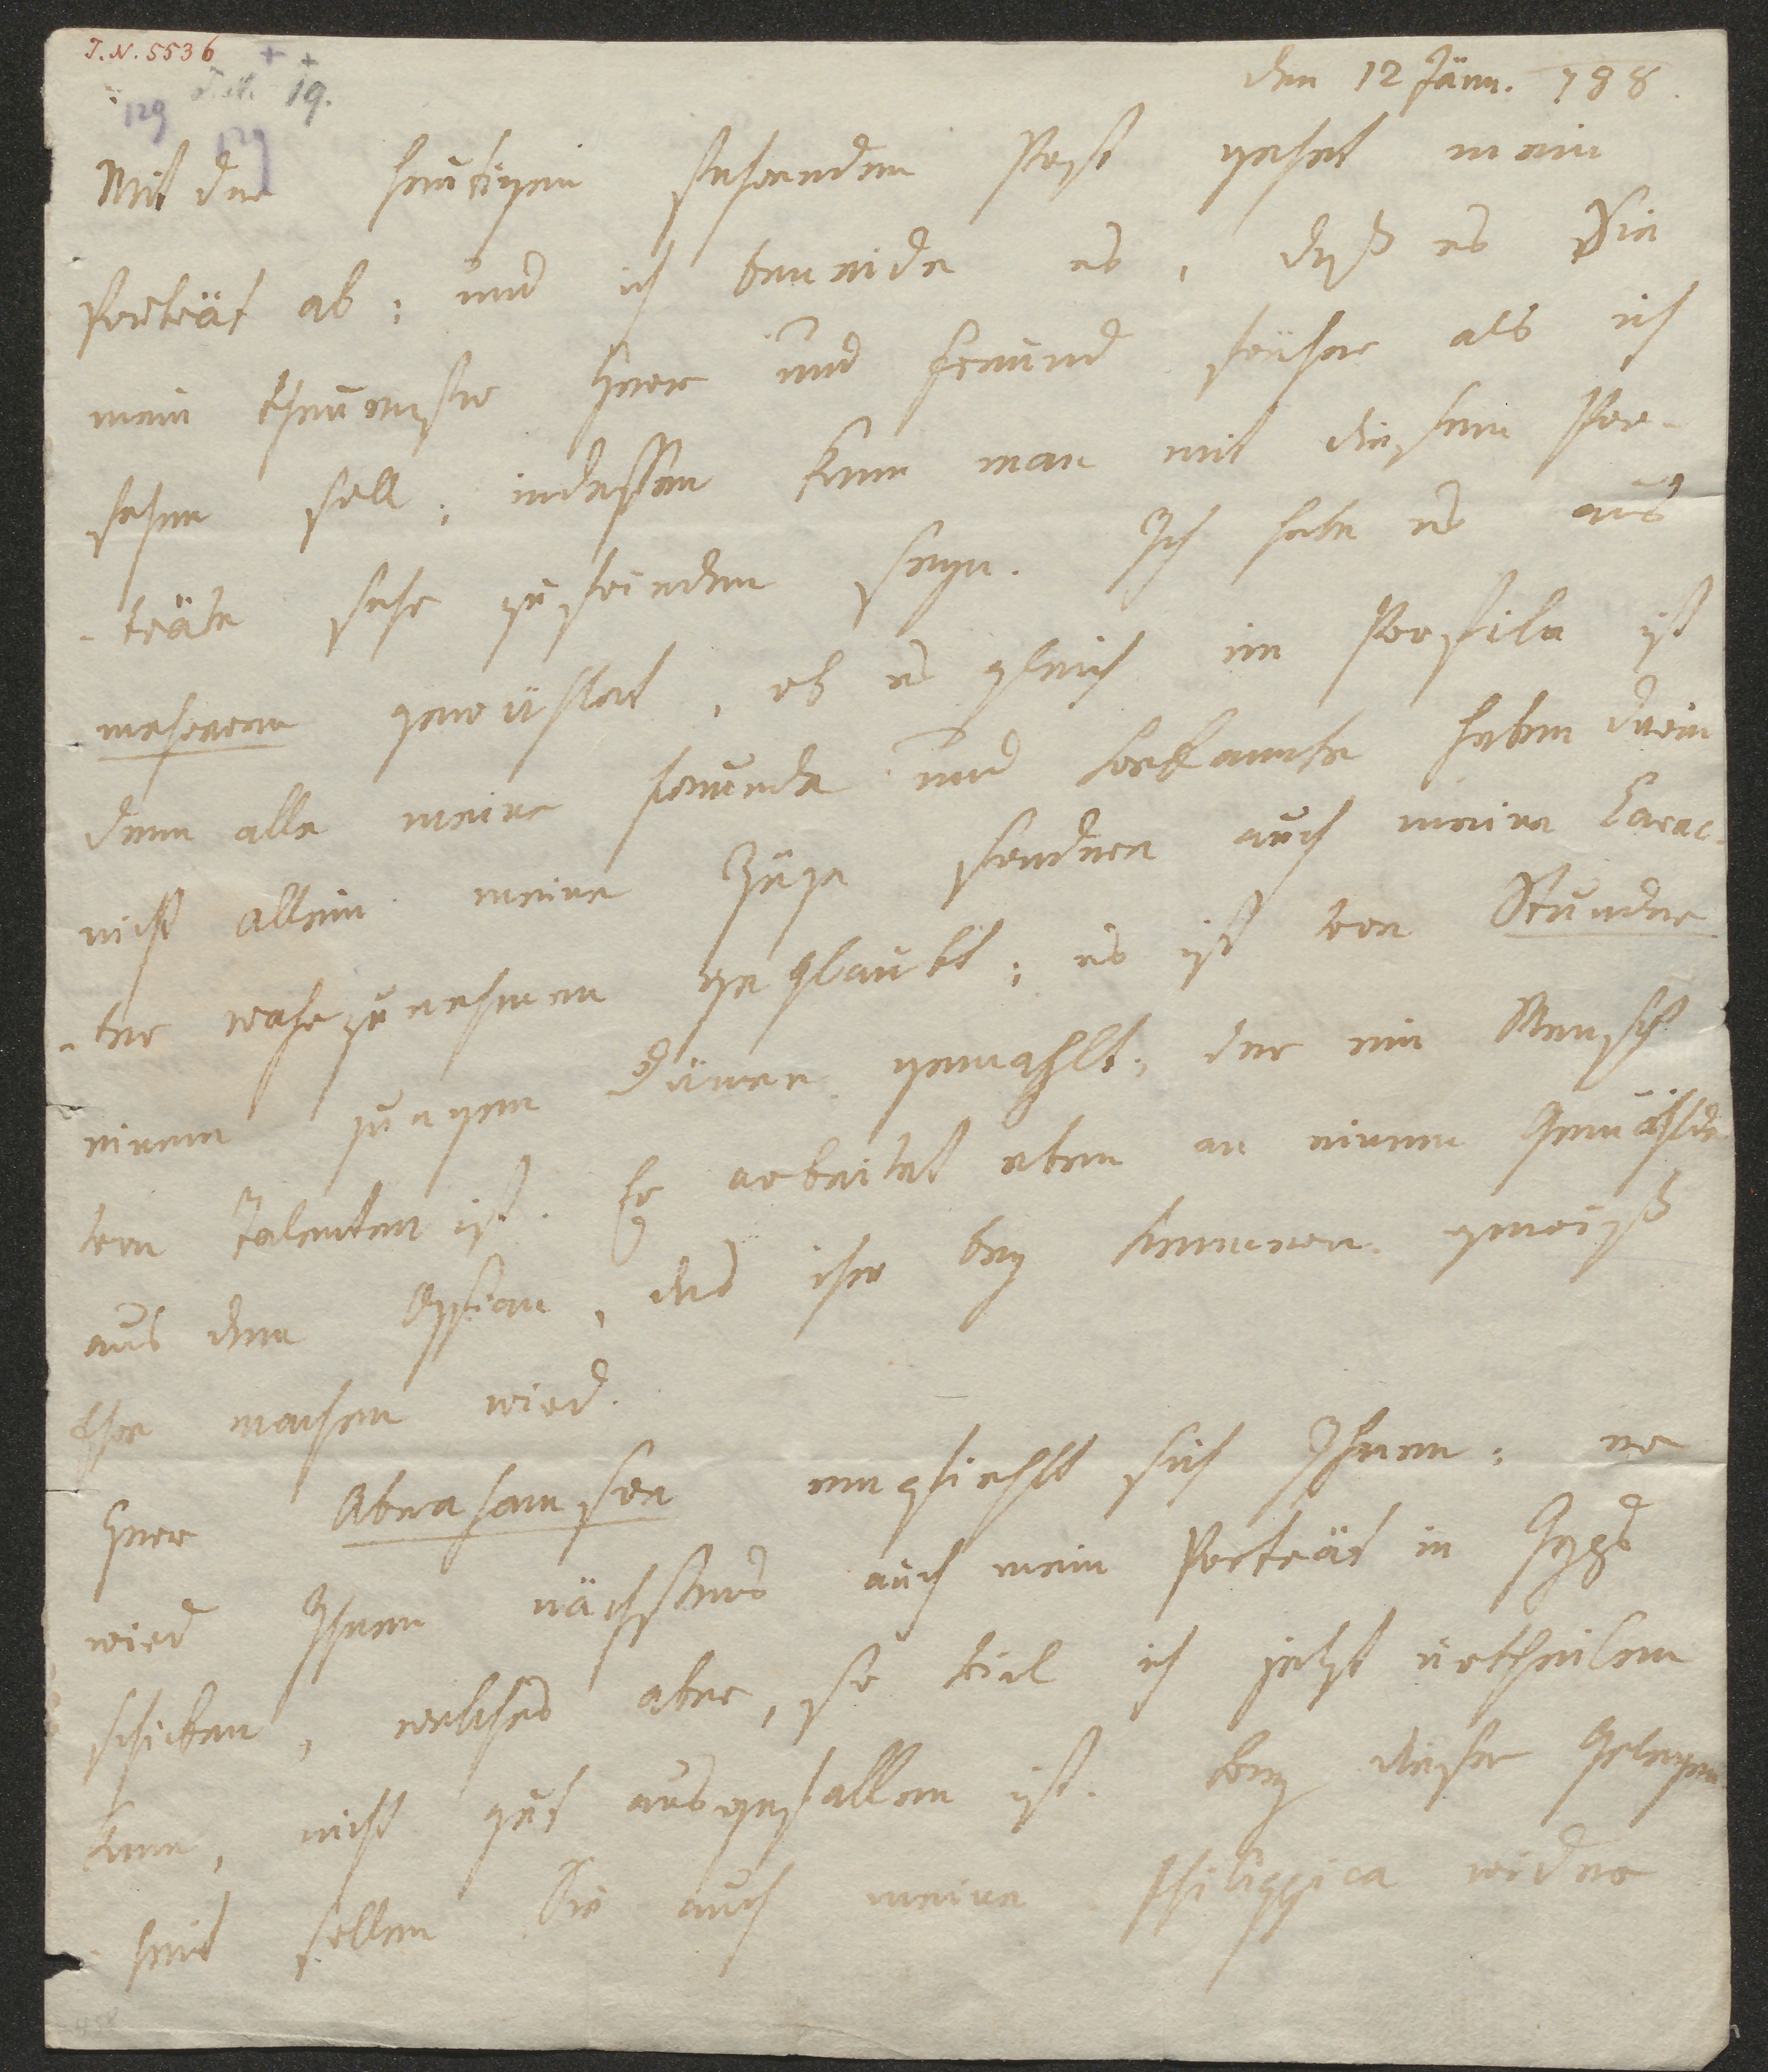 I.N. 5536
19.
129
129
den 12 Jänn. 788.
Mit der heutigen fahrenden Post gehet mein
Porträt ab; und ich beneide es, daß es Sie
mein theuerster Herr und Freund früher als ich
sehen soll; indessen kann man mit diesem Por-
-träte sehr zufrieden seyn. Ich habe es aus
mehreren gewählet, ob es gleich im Porfile ist
denn alle meine freunde und bekannte haben drein
nicht allein meine Züge sondren auch meinen Carac-
-ter wahrzunehmen geglaubt; es ist von Stunder
einem jungen Dänen gemahlt; der ein Mensch
von Talenten ist. Er arbeitet eben an einem Gemählde
aus dem Ossian, das ihm bey kennern gewiß
Ehre machen wird.
Herr Abrahamson empfiehlt sich Ihnen; er
wird Ihnen nächstens auch mein Porträt in Gyps
schicken, welches aber, so viel ich jetzt urtheilen
kann, nicht gut ausgefallen ist. bey dieser Gelegen-
-heit sollen Sie auch meine Philippica wider